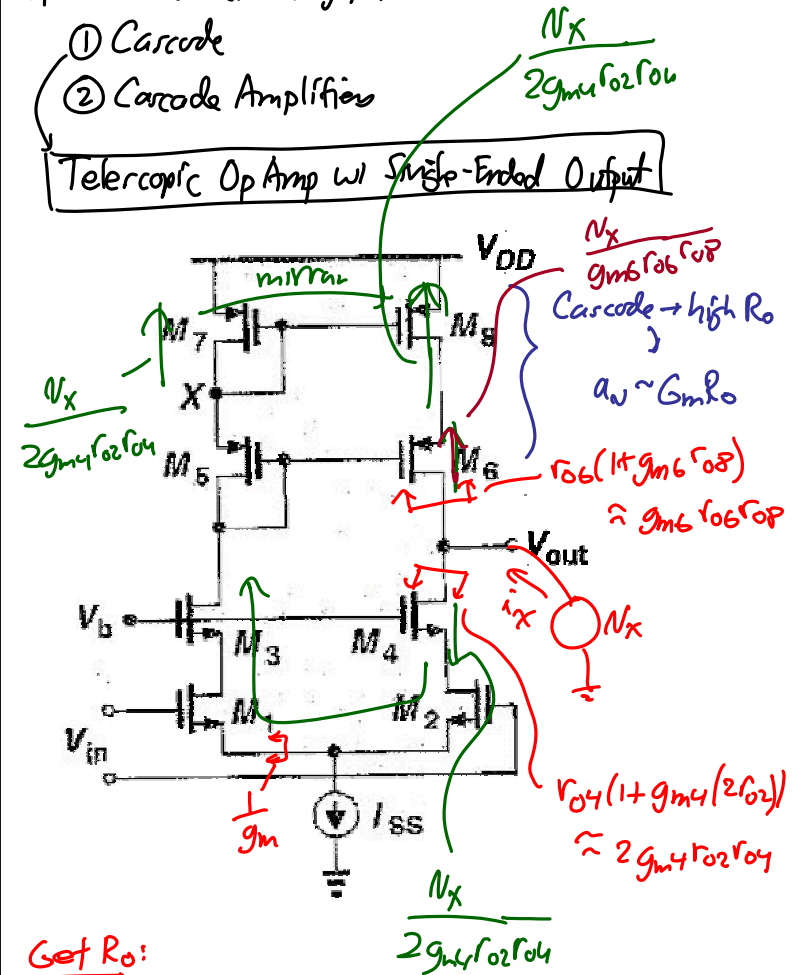 ① Cascode
② Cascode Amplifiers
Telescopic Op Amp w/ Single-Ended Output
Nx
2gm4ro2ro4
VDD
mirror
M7
M8
Nx
gm6ro6ro8
Cascode → high Ro
aN ~ GmRo
X
Nx
2gm4ro2ro4
M5
M6
ro6(1+gm6ro8)
≈ gm6ro6ro8
Vout
ix
Nx
Vb
M3
M4
M1
M2
Vin
1
gm
ISS
ro4(1+gm4(2ro2))
≈ 2gm4ro2ro4
Nx
2gm4ro2ro4
Get Ro: